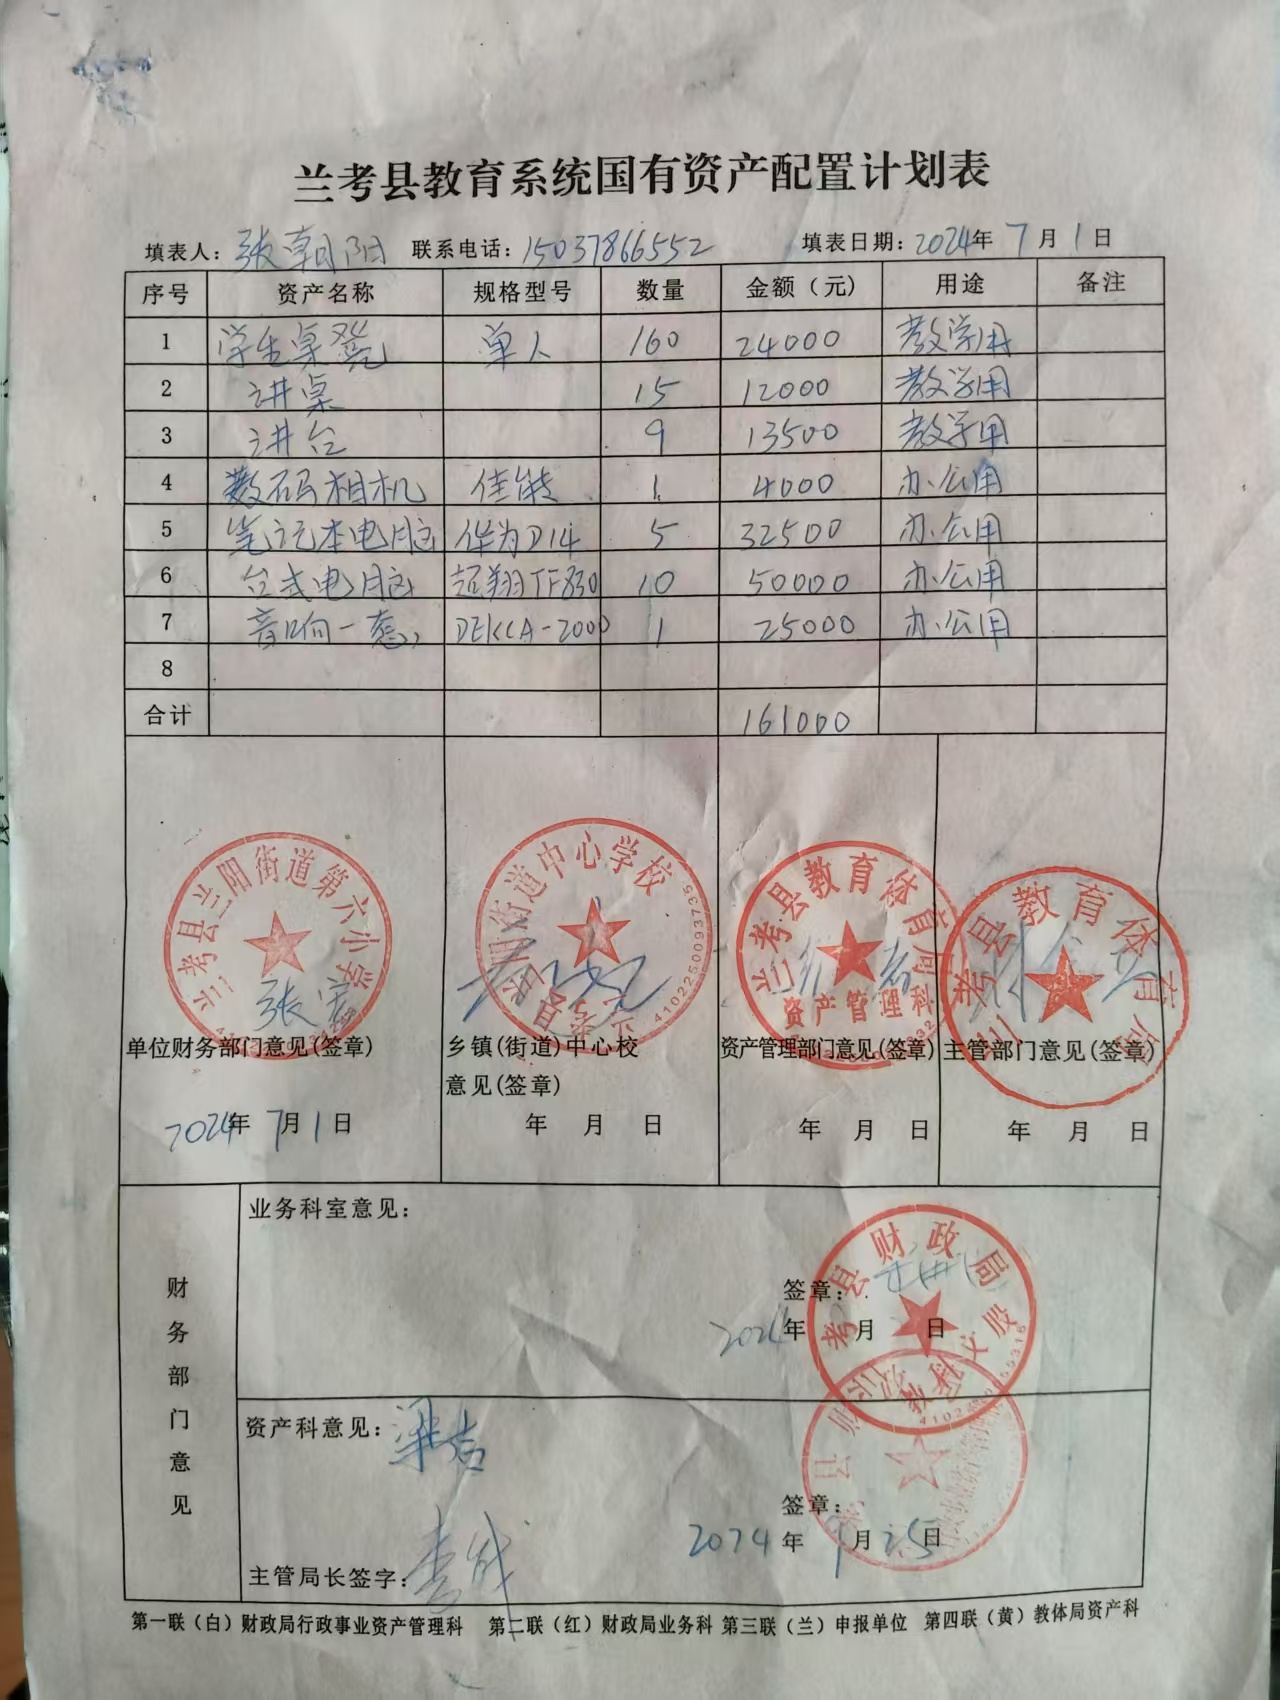 兰考县教育系统国有资产配置计划表
填表人：张朝阳 联系电话：15037866552 填表日期：2024年7月1日
序号 资产名称 规格型号 数量 金额（元） 用途 备注
1 学生桌凳 单人 160 24000 教学用
2 讲桌 15 12000 教学用
3 讲台 9 13500 教学用
4 数码相机 佳能 1 4000 办公用
5 笔记本电脑 华为D14 5 32500 办公用
6 台式电脑 超翔TF830 10 50000 办公用
7 音响一套 1 25000 办公用
8
合计 161000
兰考县兰阳街道第六小学
张
单位财务部门意见(签章)
2024年7月1日
阳街道中心学校
4102250093735
乡镇(街道)中心校
意见(签章)
年 月 日
兰考县教育体育局
资产管理科
资产管理部门意见(签章)
年 月 日
考县教育体育局
主管部门意见(签章)
年 月 日
财务部门意见
业务科室意见：
考县财政局
签章：
2024年 月 日
资产科意见：梁
签章：
2024年9月25日
主管局长签字：李
第一联（白）财政局行政事业资产管理科 第二联（红）财政局业务科 第三联（兰）申报单位 第四联（黄）教体局资产科